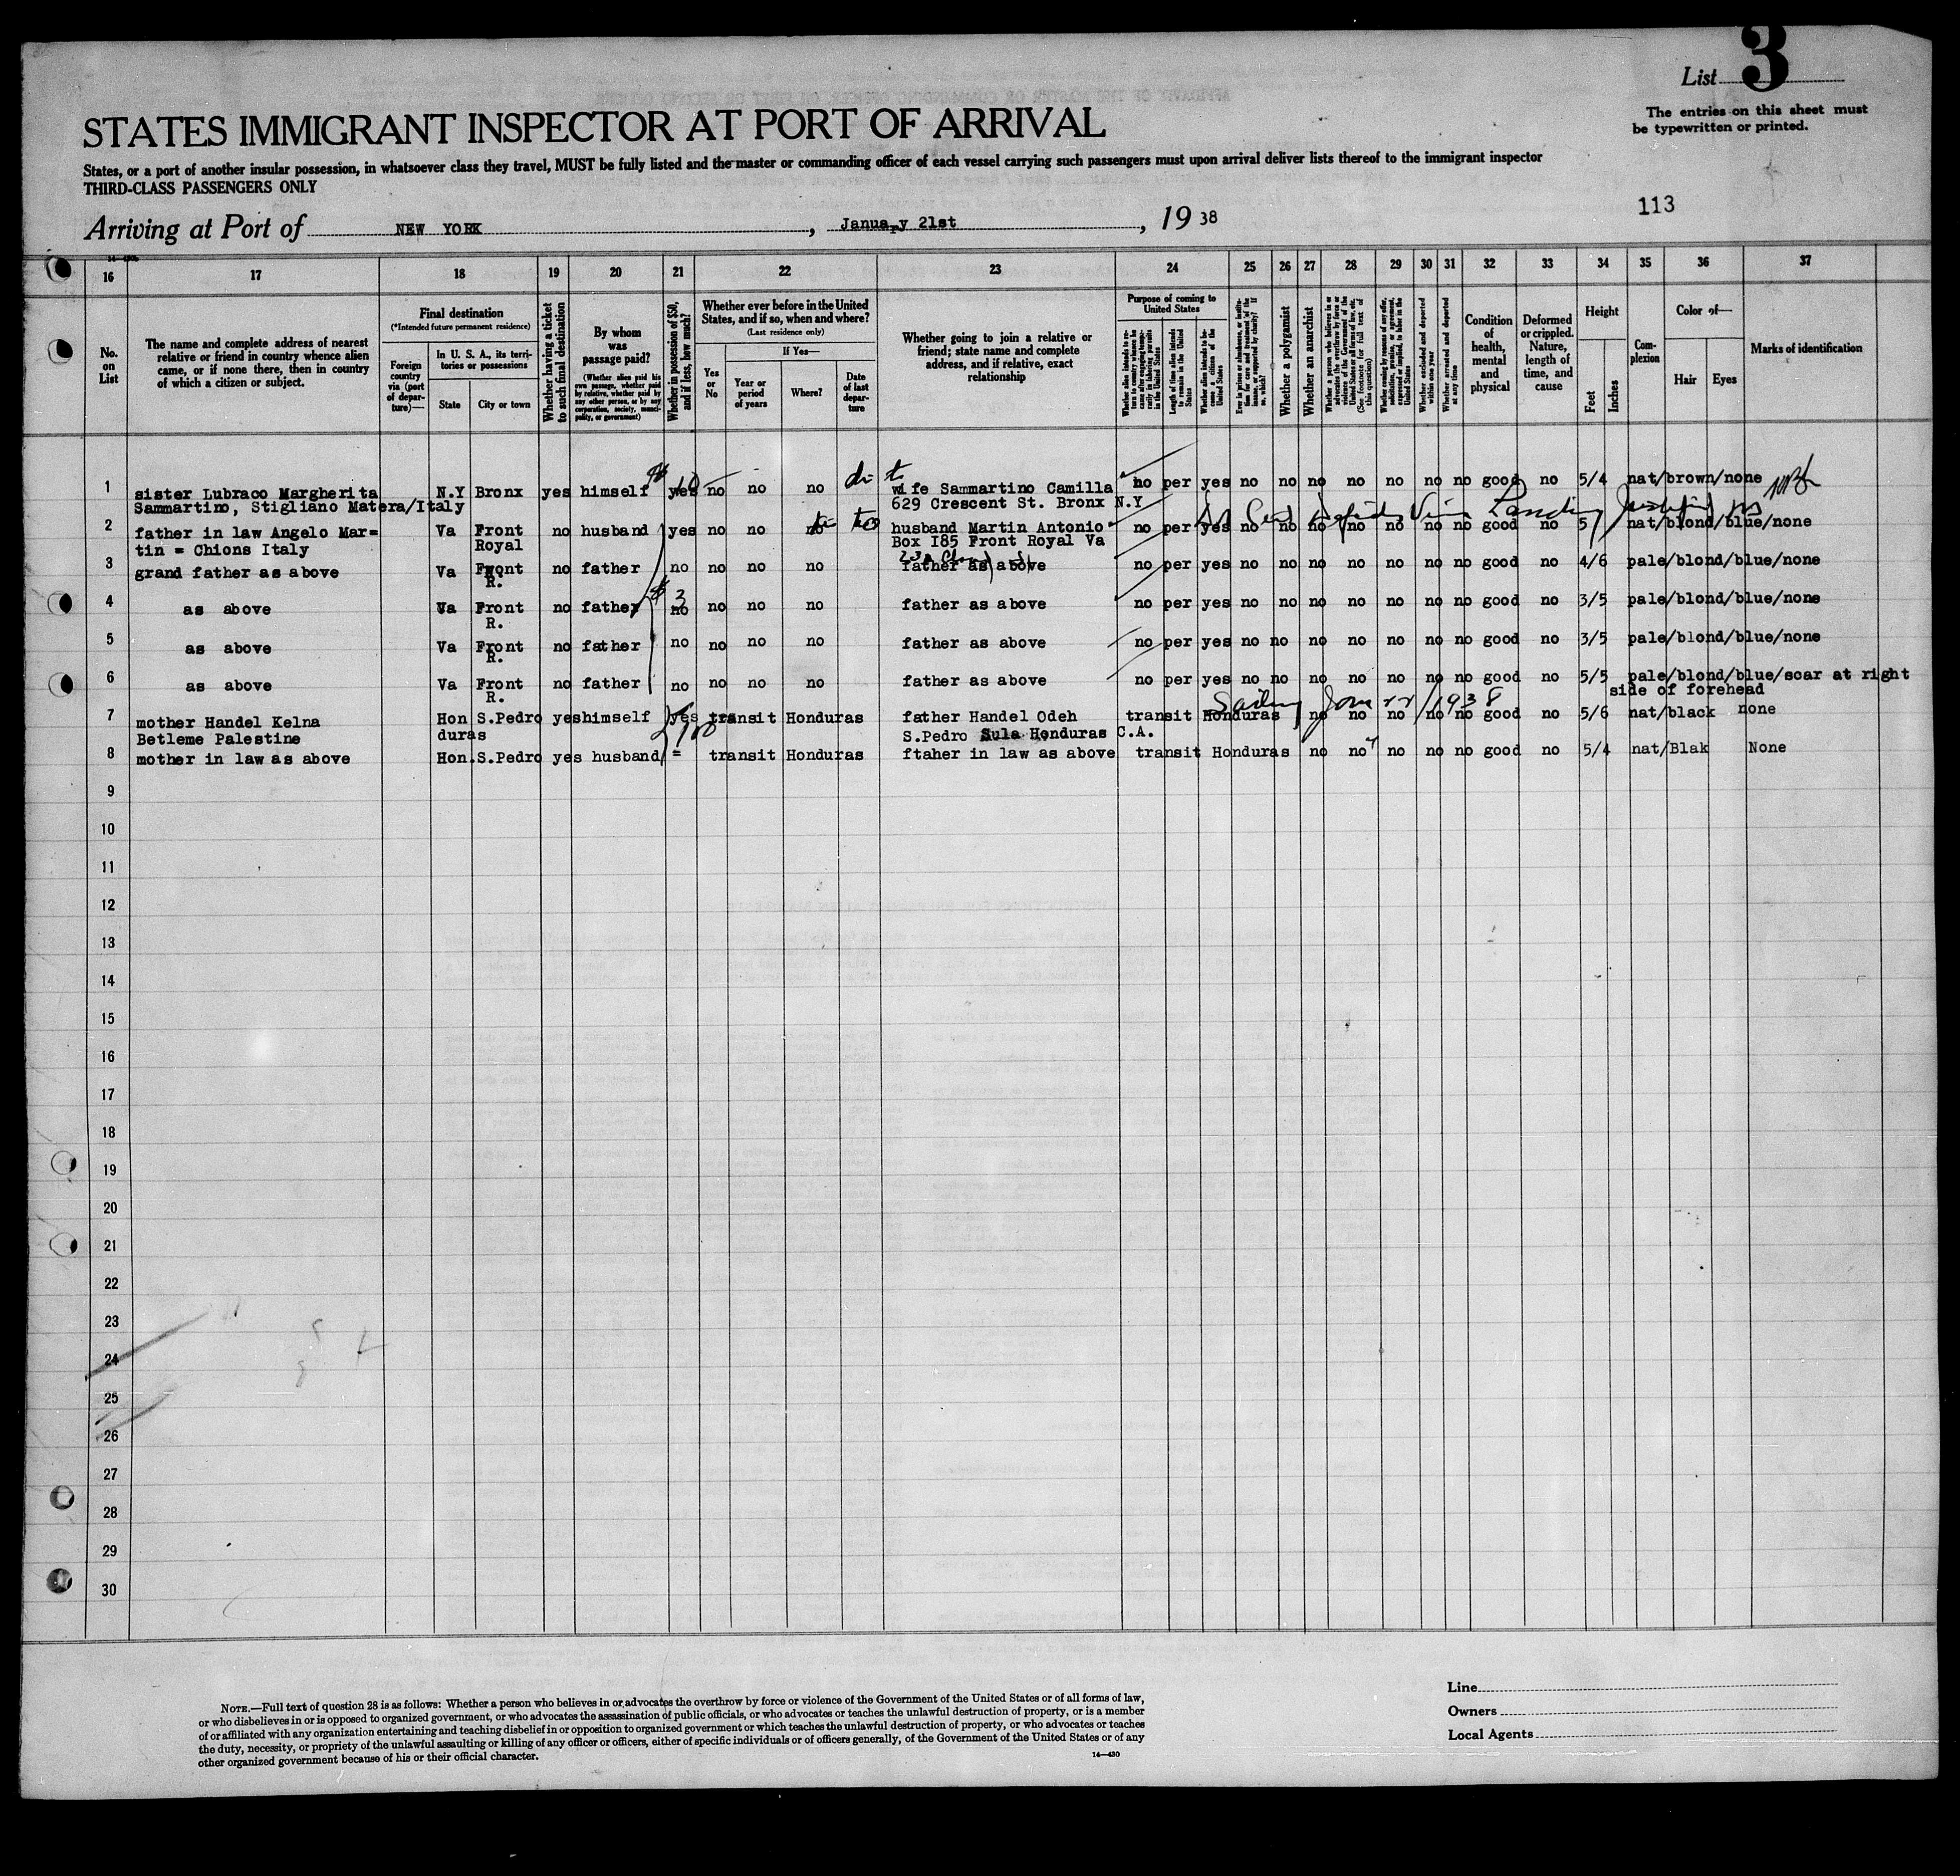 List 3
The entries on this sheet must
be typewritten or printed.
STATES IMMIGRANT INSPECTOR AT PORT OF ARRIVAL
States, or a port of another insular possession, in whatsoever class they travel, MUST be fully listed and the master or commanding officer of each vessel carrying such passengers must upon arrival deliver lists thereof to the immigrant inspector
THIRD-CLASS PASSENGERS ONLY
113
Arriving at Port of NEW YORK, January 21st, 19 38
16 17 18 19 20 21 22 23 24 25 26 27 28 29 30 31 32 33 34 35 36 37
No. on List
The name and complete address of nearest
relative or friend in country whence alien
came, or if none there, then in country
of which a citizen or subject.
Final destination
(*Intended future permanent residence)
Foreign country via (port of departure)—
In U. S. A., its territories or possessions
State City or town
Whether having a ticket to such final destination
By whom was passage paid?
(Whether alien paid his own passage, whether paid by relative, whether paid by any other person, or by any corporation, society, municipality, or government)
Whether in possession of $50, and if less, how much?
Whether ever before in the United States, and if so, when and where?
(Last residence only)
Yes or No
If Yes—
Year or period of years
Where?
Date of last departure
Whether going to join a relative or
friend; state name and complete
address, and if relative, exact
relationship
Purpose of coming to United States
Length of time alien intends to remain in the United States
Whether alien intends to become a citizen of the United States
Whether a polygamist
Whether an anarchist
(See footnote for full text of this question)
Whether excluded and deported within one year
Whether arrested and deported at any time
Condition of health, mental and physical
Deformed or crippled. Nature, length of time, and cause
Height
Feet Inches
Complexion
Color of—
Hair Eyes
Marks of identification
1 sister Lubraco Margherita N.Y Bronx yes himself yes no no no wife Sammartino Camilla no per yes no no no no no no no good no 5/4 nat/brown/none
Sammartino, Stigliano Matera/Italy 629 Crescent St. Bronx N.Y
2 father in law Angelo Mar= Va Front no husband yes no no no husband Martin Antonio no per yes no no no no no no no good no 5/ nat/blond/blue/none
tin = Chions Italy Royal Box I85 Front Royal Va
3 grand father as above Va Front no father no no no no father as above no per yes no no no no no no no good no 4/6 pale/blond/blue/none
R.
4 as above Va Front no father $ 3 no no no no father as above no per yes no no no no no no no good no 3/5 pale/blond/blue/none
R.
5 as above Va Front no father no no no no father as above no per yes no no no no no no no good no 3/5 pale/blond/blue/none
R.
6 as above Va Front no father no no no no father as above no per yes no no no no no no no good no 5/5 pale/blond/blue/scar at right
R. side of forehead
Sailing Jan 22/1938
7 mother Handel Kelna Hon S.Pedro yes himself yes transit Honduras father Handel Odeh transit Honduras no no no no no good no 5/6 nat/black none
Betleme Palestine duras S.Pedro Sula Honduras C.A.
8 mother in law as above Hon.S.Pedro yes husband = transit Honduras ftaher in law as above transit Honduras no no no no no good no 5/4 nat/Blak None
9
10
11
12
13
14
15
16
17
18
19
20
21
22
23
24
25
26
27
28
29
30
NOTE.—Full text of question 28 is as follows: Whether a person who believes in or advocates the overthrow by force or violence of the Government of the United States or of all forms of law,
or who disbelieves in or is opposed to organized government, or who advocates the assassination of public officials, or who advocates or teaches the unlawful destruction of property, or is a member
of or affiliated with any organization entertaining and teaching disbelief in or opposition to organized government or which teaches the unlawful destruction of property, or who advocates or teaches
the duty, necessity, or propriety of the unlawful assaulting or killing of any officer or officers, either of specific individuals or of officers generally, of the Government of the United States or of any
other organized government because of his or their official character.
14—430
Line
Owners
Local Agents